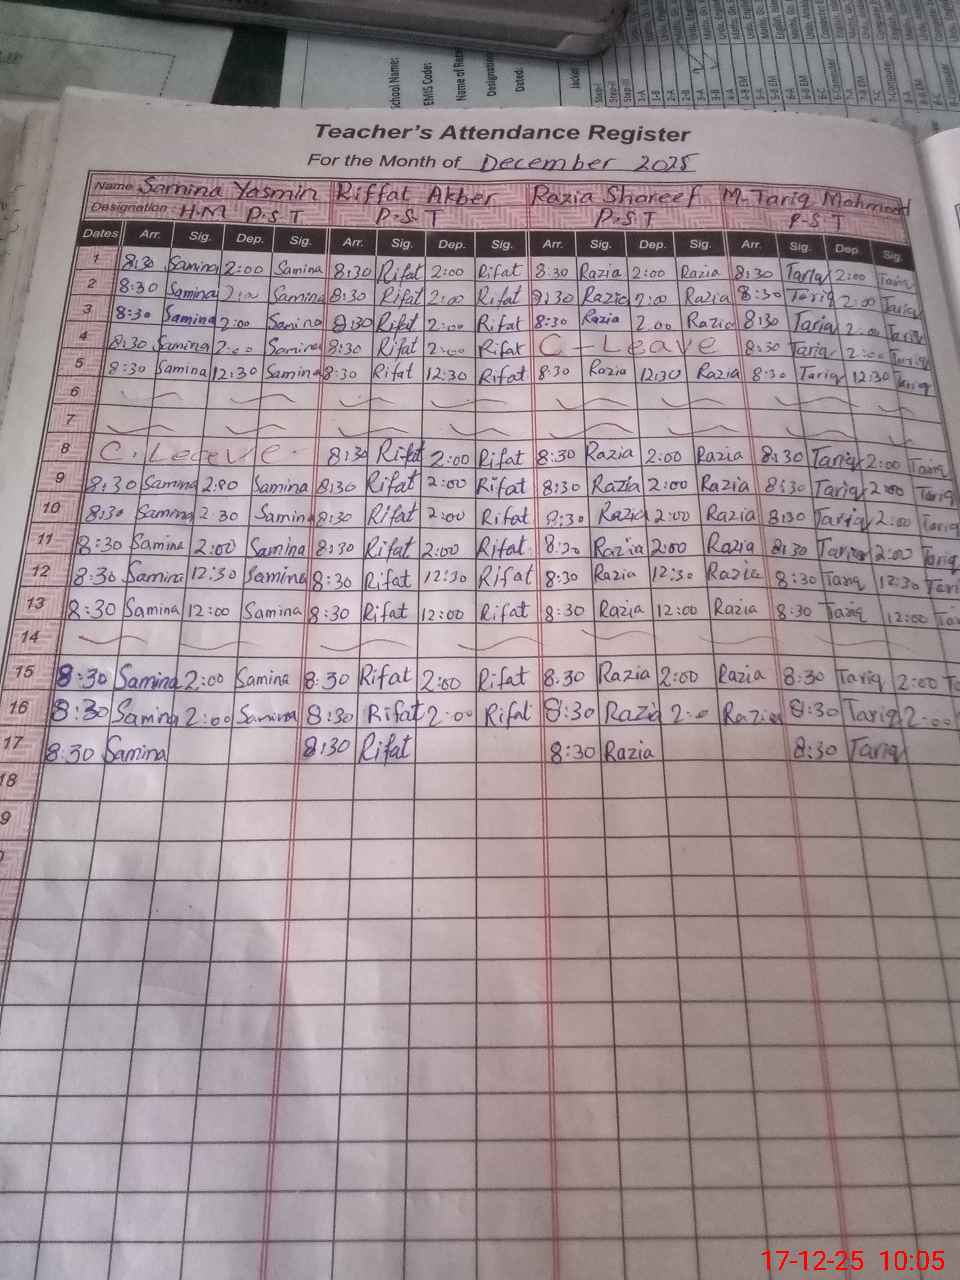 School Name:
EMIS Code:
Designation
Dated:
Teacher's Attendance Register
For the Month of December 2025
Name Samina Yasmin Riffat Akber Razia Shareef M. Tariq Mahmood
Designation H.M P.S.T P.S.T P.S.T P.S.T
Dates Arr. Sig. Dep. Sig. Arr. Sig. Dep. Sig. Arr. Sig. Dep. Sig. Arr. Sig. Dep. Sig.
1 8:30 Samina 2:00 Samina 8:30 Rifat 2:00 Rifat 8:30 Razia 2:00 Razia 8:30 Tariq 2:00 Tariq
2 8:30 Samina 2:00 Samina 8:30 Rifat 2:00 Rifat 8:30 Razia 2:00 Razia 8:30 Tariq 2:00 Tariq
3 8:30 Samina 2:00 Samina 8:30 Rifat 2:00 Rifat 8:30 Razia 2.00 Razia 8:30 Tariq 2:00 Tariq
4 8:30 Samina 2:00 Samina 8:30 Rifat 2:00 Rifat C-Leave 8:30 Tariq 2:00 Tariq
5 8:30 Samina 12:30 Samina 8:30 Rifat 12:30 Rifat 8:30 Razia 12:30 Razia 8:30 Tariq 12:30 Tariq
6
7
8 C. Leave 8:30 Rifat 2:00 Rifat 8:30 Razia 2:00 Razia 8:30 Tariq 2:00 Tariq
9 8:30 Samina 2:00 Samina 8:30 Rifat 2:00 Rifat 8:30 Razia 2:00 Razia 8:30 Tariq 2:00 Tariq
10 8:30 Samina 2:30 Samina 8:30 Rifat 2:00 Rifat 8:30 Razia 2:00 Razia 8:30 Tariq 2:00 Tariq
11 8:30 Samina 2:00 Samina 8:30 Rifat 2:00 Rifat 8:30 Razia 2:00 Razia 8:30 Tariq 2:00 Tariq
12 8:30 Samina 12:30 Samina 8:30 Rifat 12:30 Rifat 8:30 Razia 12:30 Razia 8:30 Tariq 12:30 Tari
13 8:30 Samina 12:00 Samina 8:30 Rifat 12:00 Rifat 8:30 Razia 12:00 Razia 8:30 Tariq 12:00 Tar
14
15 8:30 Samina 2:00 Samina 8:30 Rifat 2:00 Rifat 8.30 Razia 2:00 Razia 8:30 Tariq 2:00 Ta
16 8:30 Samina 2:00 Samina 8:30 Rifat 2:00 Rifat 8:30 Razia 2:00 Razia 8:30 Tariq 2:00
17 8:30 Samina 8:30 Rifat 8:30 Razia 8:30 Tariq
18
9
17-12-25 10:05